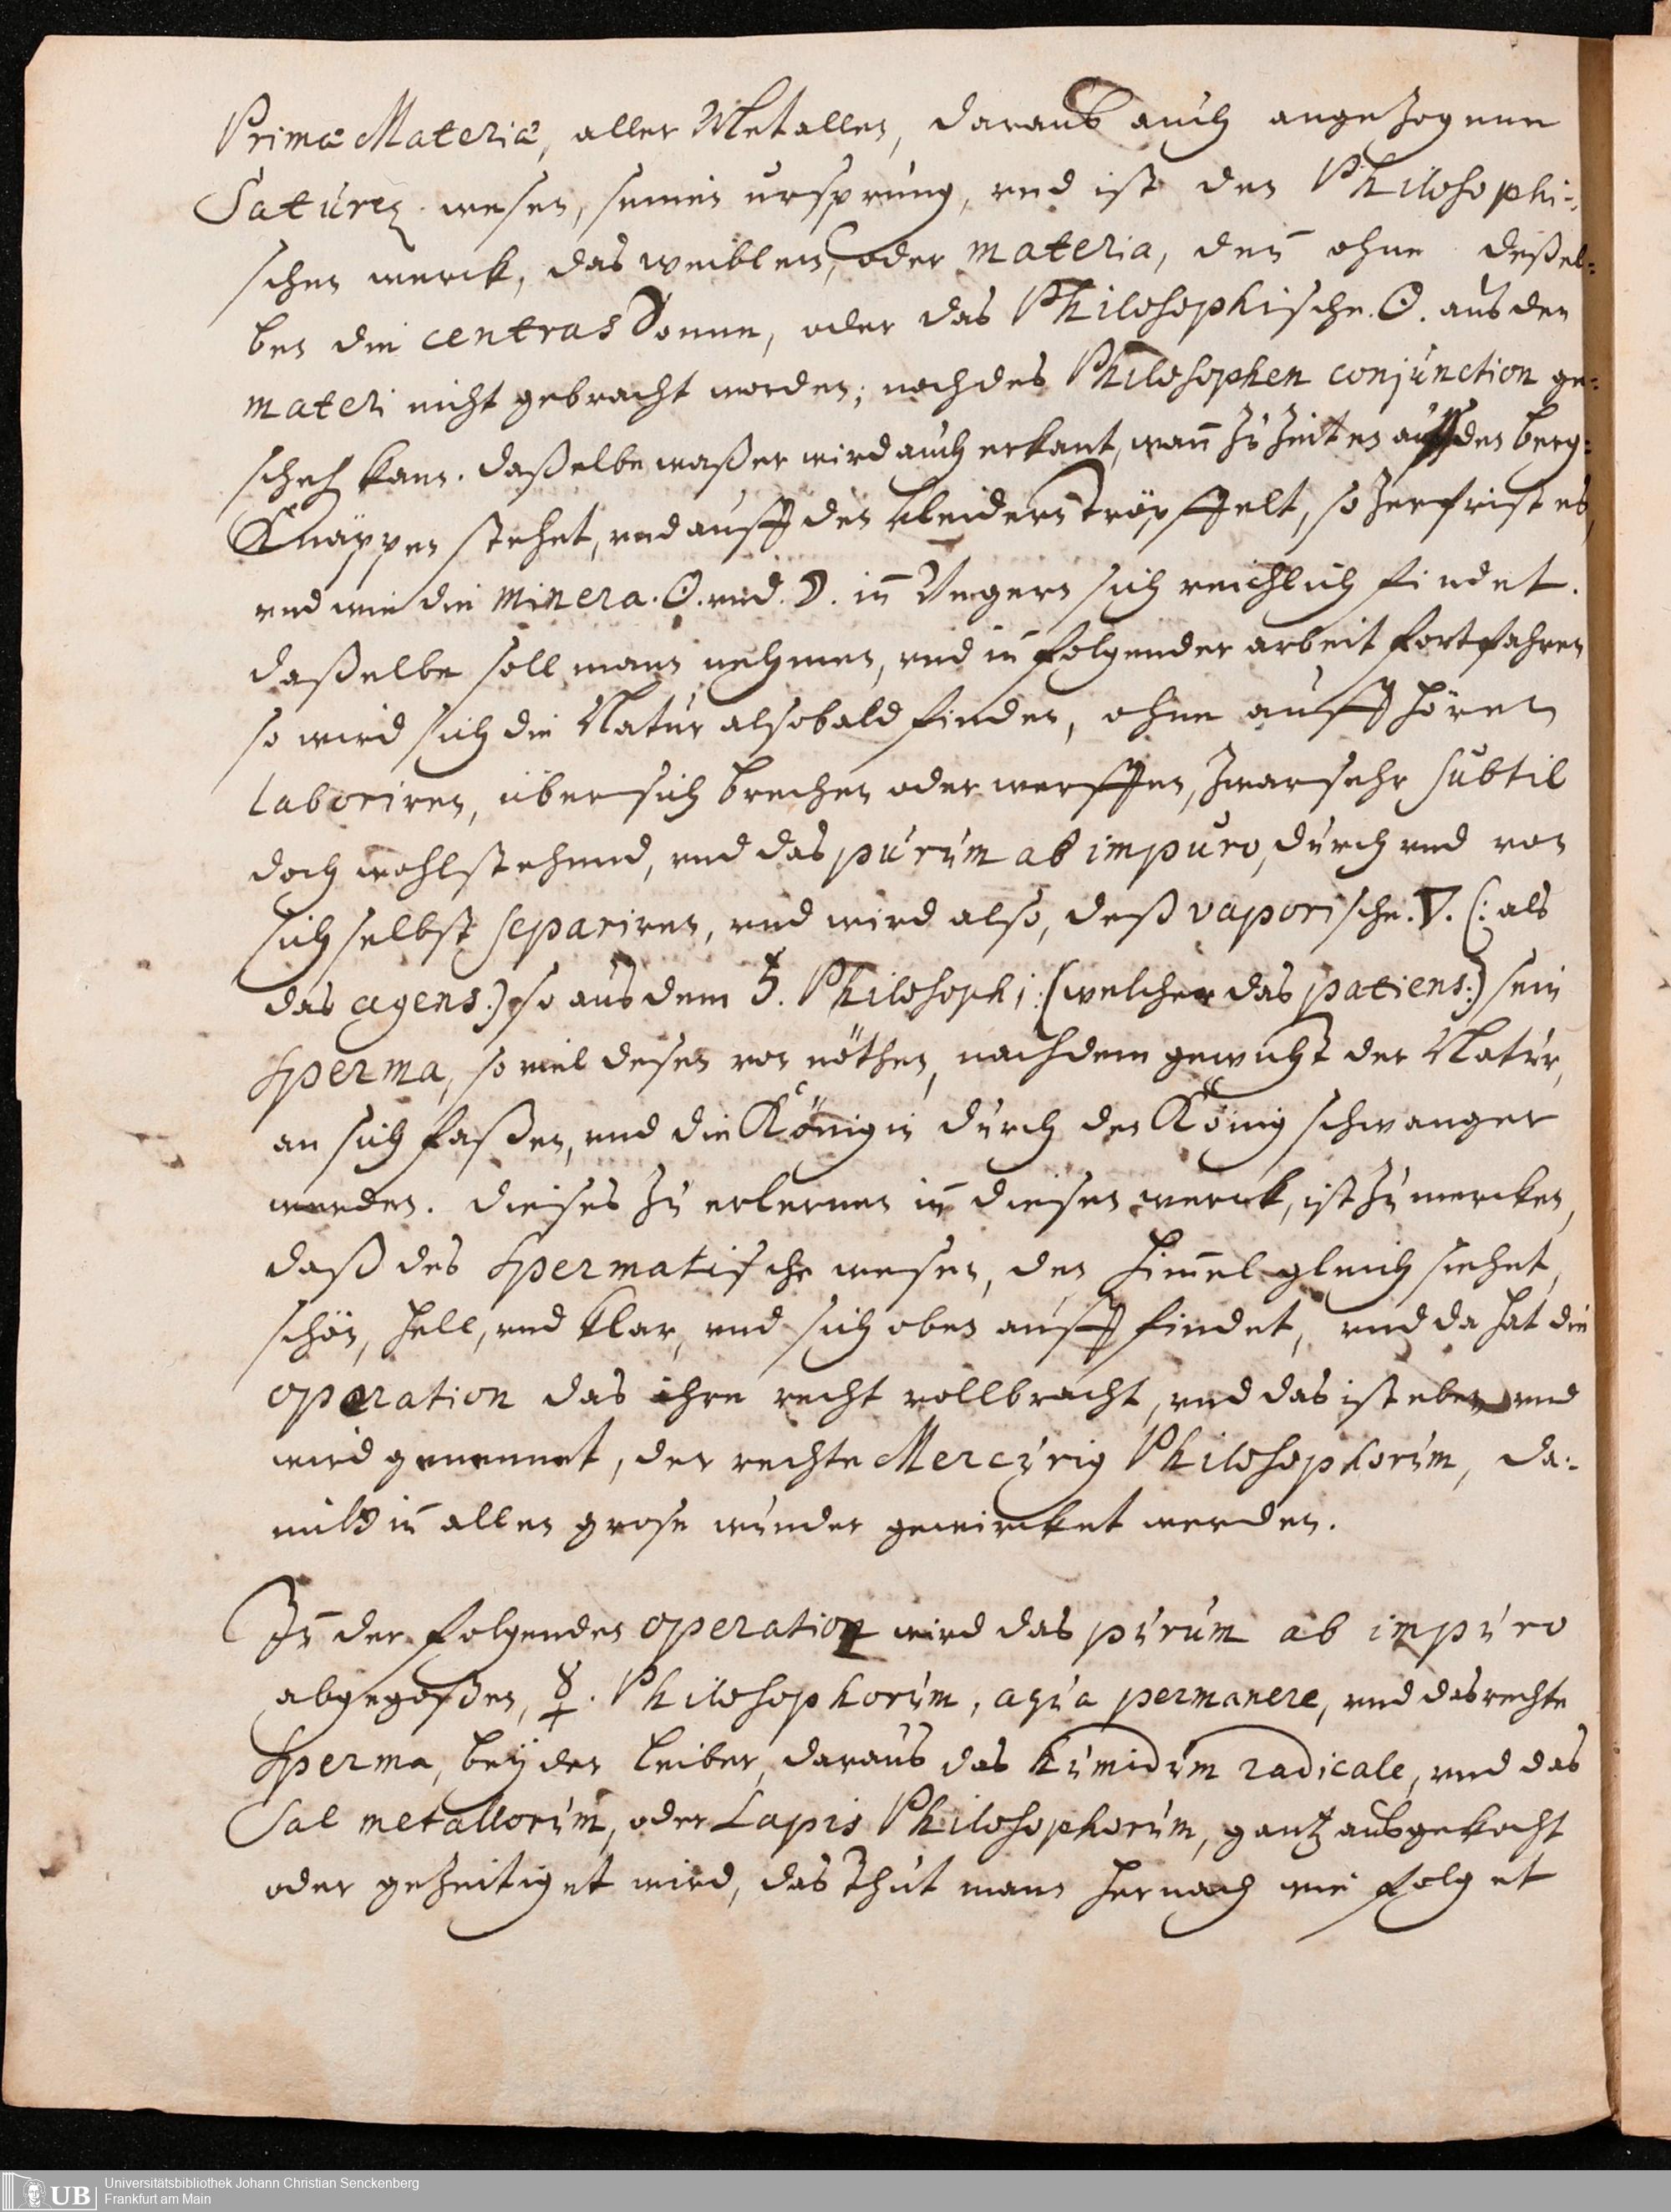 Primæ Materiæ, aller Metallen, daraus auch angezogene
Saturn wesen, seinen ursprung, vnd ist den Philosophi-
schen werck, das weiblein, oder materia, den ohne deßel-
ben die centras Sonne, oder das Philosophische ☉. aus der
materi nicht gebracht worden; noch des Philosophen conjunction ge-
scheh kann. daßelbe waßer wird auch erkant, wann zu Zeiten auff den berg-
Knäppen stehet, vnd auff den Kleidern tröpffelt, so zerfrist es,
vnd wie die minera ☉. vnd ☽. in Vngern sich reichlich findet.
daßelbe soll mann nehmen, vnd in folgender arbeit fortfahren
so wird sich die Natur alsobald finden, ohne auffhören
laboriren, über sich brechen oder werffen, zwar sehr subtil
doch wohlstehend, vnd das purum ab impuro, durch vnd von
sich selbst separiren, vnd wird also, deß vaporische ▽. (: als
das agens:) so aus dem ♄. Philosophi: (welcher das patiens:) sein
sperma, so viel desen von nöthen, nach dem gewicht der Natur,
an sich faßen, vnd die Königin durch den König schwanger
werden. dieses zu erlernen in diesen werck, ist zu mercken,
daß das Spermatische wesen, den himmel gleich siehet,
schön, hell, vnd klar, vnd sich oben auff findet, vnd da hat die
operation das ihre recht vollbracht, vnd das ist eben vnd
wird genennet, der rechte Mercurig Philosophorum, da-
mit in allen grose wunder gewircket werden.
In der folgenden operation wird das purum ab impuro
abgegoßen, ☿. Philosophorum, aqua permanere, vnd das rechte
Sperma, beyder leiber, daraus das humidum radicale, vnd das
Sal metallorum, oder Lapis Philosophorum, gantz ausgekocht
oder gezeitiget wird, das thut mann hernach wie folget
UB
Universitätsbibliothek Johann Christian Senckenberg
Frankfurt am Main